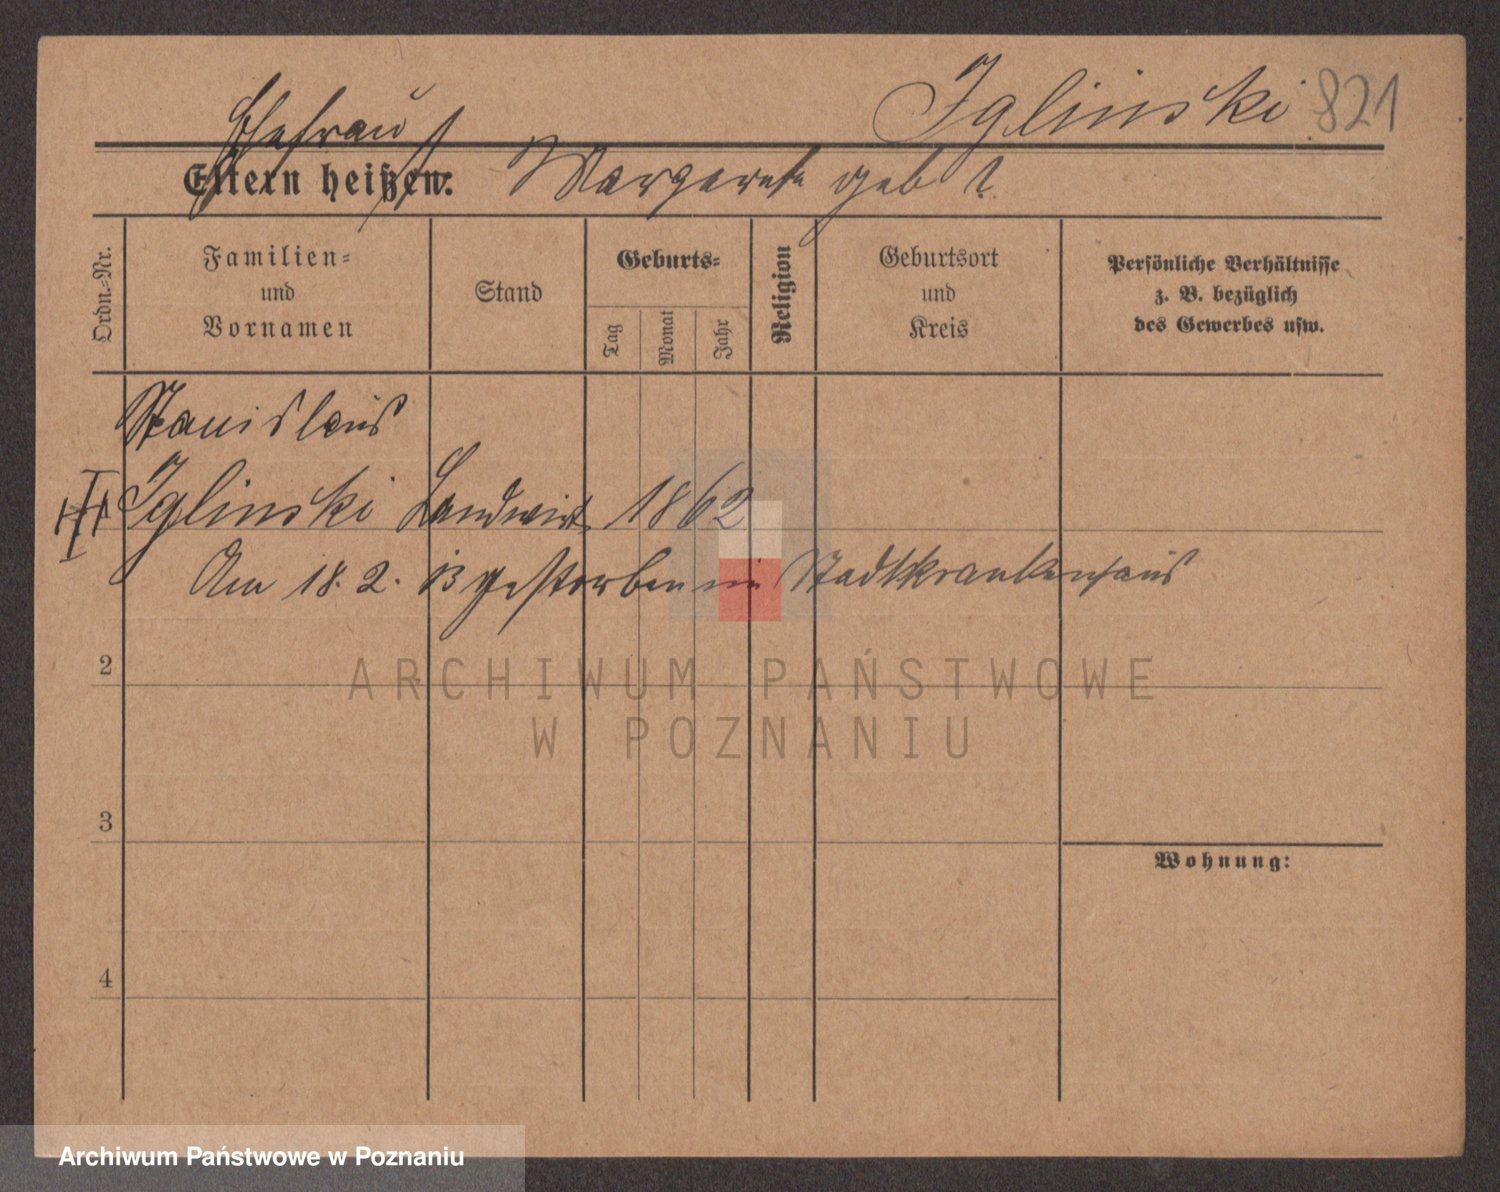 Iglinski 821
Ehefrau
Eltern heißen: Margarete geb ?
Ordn.-Nr.
Familien-
und
Vornamen
Stand
Geburts-
Tag
Monat
Jahr
Religion
Geburtsort
und
Kreis
Persönliche Verhältnisse
z. B. bezüglich
des Gewerbes usw.
Stanislaus
Iglinski Landwirt 1862
Am 18. 2. 13 gestorben im Stadtkrankenhaus
2
ARCHIWUM PAŃSTWOWE
W POZNANIU
3
Wohnung:
4
Archiwum Państwowe w Poznaniu